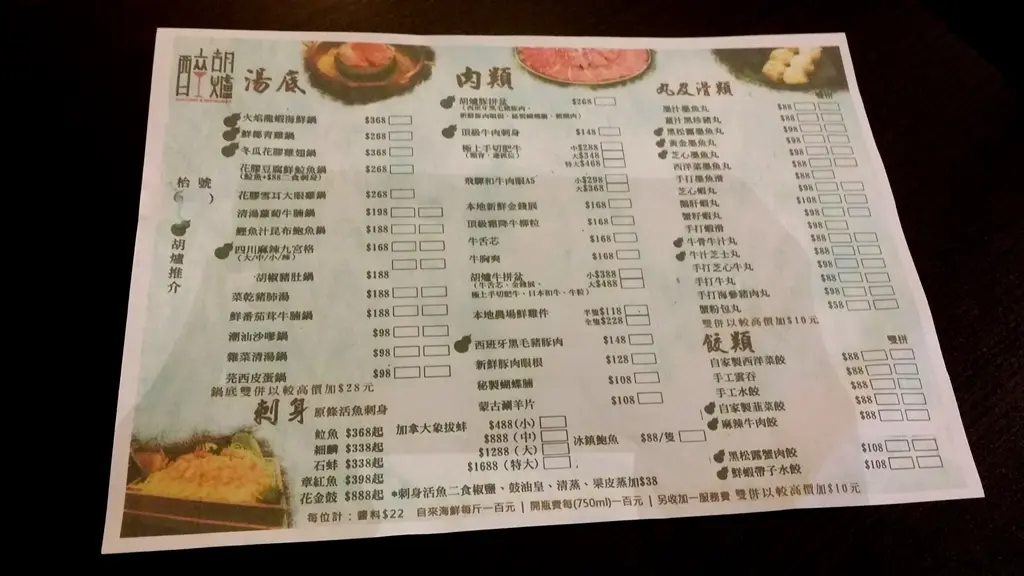 醉胡爐
枱 號
胡爐推介
湯底
火焰龍蝦海鮮鍋 $368
鮮椰青雞鍋 $268
冬瓜花膠雞翅鍋 $368
花膠豆腐鮮鯰魚鍋 $268
花膠雪耳大眼雞鍋 $268
清湯蘿蔔牛腩鍋 $198
鰹魚汁昆布鮑魚鍋 $188
四川麻辣九宮格 $168
(大/中/小/辣)
胡椒豬肚鍋 $188
菜乾豬肺湯 $188
鮮番茄茸牛腩鍋 $188
潮汕沙嗲鍋 $98
雜菜清湯鍋 $98
芫西皮蛋鍋 $98
鍋底雙併以較高價加$28元
肉類
胡爐豚拼盆 $268
頂級牛肉刺身 $148
極上手切肥牛 小$288
大$348
特大$468
飛驒和牛肉眼A5 小$298
大$368
本地新鮮金錢展 $168
頂級霜降牛柳粒 $168
牛舌芯 $168
牛胸爽 $168
胡爐牛拼盆 小$388
(牛舌芯、金錢展、 大$488
極上手切肥牛、日本和牛、牛粒)
本地農場鮮雞件 半隻$118
全隻$228
西班牙黑毛豬豚肉 $148
新鮮豚肉眼根 $128
秘製蝴蝶腩 $108
蒙古涮羊片 $108
丸及滑類
雙拼
墨汁墨魚丸 $88
薑汁黑珍豬丸 $88
黑松露墨魚丸 $98
黃金墨魚丸 $88
芝心墨魚丸 $98
西洋菜墨魚丸 $88
手打墨魚滑 $88
芝心蝦丸 $98
鵝肝蝦丸 $108
蟹籽蝦丸 $98
手打蝦滑
牛骨牛汁丸 $88
牛汁芝士丸 $88
手打芝心牛丸 $98
手打牛丸 $88
手打海參豬肉丸 $98
蟹粉包丸 $58
雙併以較高價加$10元
餃類
雙拼
自家製西洋菜餃 $88
手工雲吞 $88
手工水餃 $88
自家製韮菜餃 $88
麻辣牛肉餃 $88
黑松露蟹肉餃 $108
鮮蝦帶子水餃 $108
雙併以較高價加$10元
刺身 原條活魚刺身
鯰魚 $368起
細鱗 $338起
石蚌 $338起
章紅魚 $398起
花金鼓 $888起
加拿大象拔蚌 $488(小)
$888(中)
$1288(大)
$1688(特大)
冰鎮鮑魚 $88/隻
*刺身活魚二食椒鹽、鼓油皇、清蒸、果皮蒸加$38
每位計：醬料$22 自來海鮮每斤一百元 | 開瓶費每(750ml)一百元 | 另收加一服務費